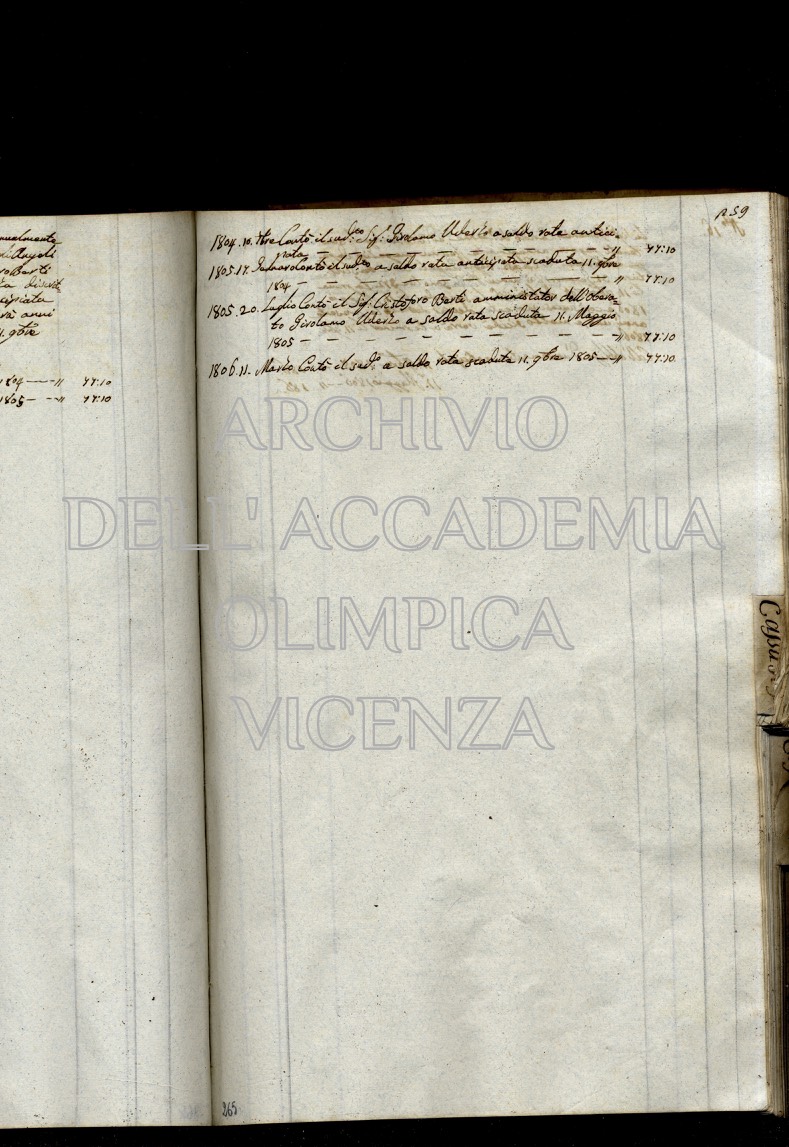 nualmente
Angeli
Barti
cipiata
anni
11. 9bre
1804 — — " 77:10
1805 — — " 77:10
p 59
1804. 10. 7bre Contò il sud.to Sig.r Girolamo Uderzo a saldo rata antici-
pata — — — — — — — — — " 77:10
1805. 17. Gennaro Contò il sud.to a saldo rata anticipata scaduta 11. 9bre
1804 — — — — — — — — — " 77:10
1805. 20. Luglio Contò il Sig.r Cristoforo Barti amministrator dell'Obera-
to Girolamo Uderzo a saldo rata scaduta 11. Maggio
1805 — — — — — — — — — " 77:10
1806. 11. Marzo Contò il sud.o a saldo rata scaduta 11. 9bre 1805 — " 77:10
ARCHIVIO
DELL'ACCADEMIA
OLIMPICA
VICENZA
265